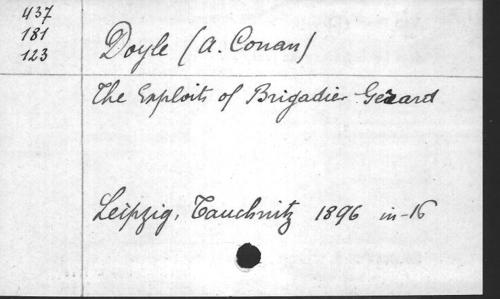 437
181
123
Doyle (A. Conan)
The Exploits of Brigadier Gerard
Leipzig, Tauchnitz 1896 in-16